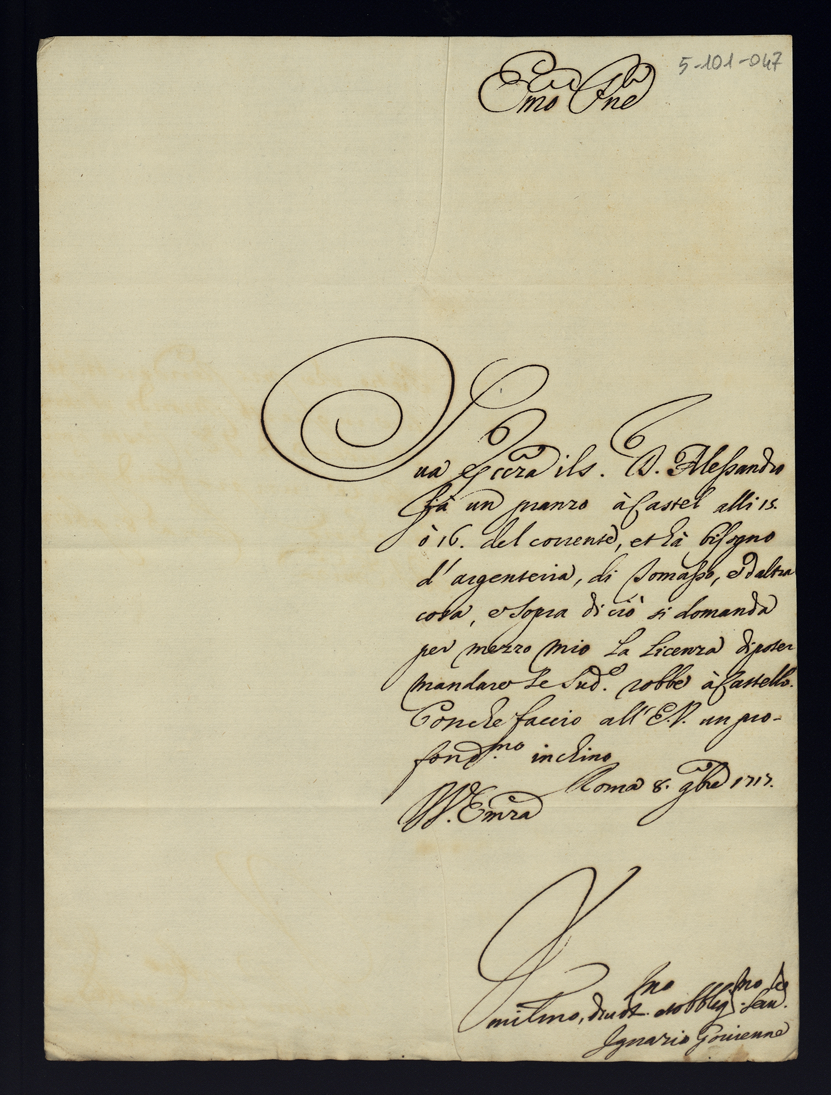 5-101-047
Emo Pne
Sua Eccza ils. D. Alessandro
fà un pranzo à Castel alli 15.
ò 16. del corrente, et hà bisogno
d'argenteria, di Damasso, e d'altra
cosa, e sopra di ciò si domanda
per mezzo mio la licenza di poter
mandare le sud.e robbe à Castello.
Con che faccio all'E.V. un pro-
fond.mo inchino
Roma 8. 9bre 1717.
W. Emza
Umilmo, diuot.mo et obblig.mo seru.
Ignazio